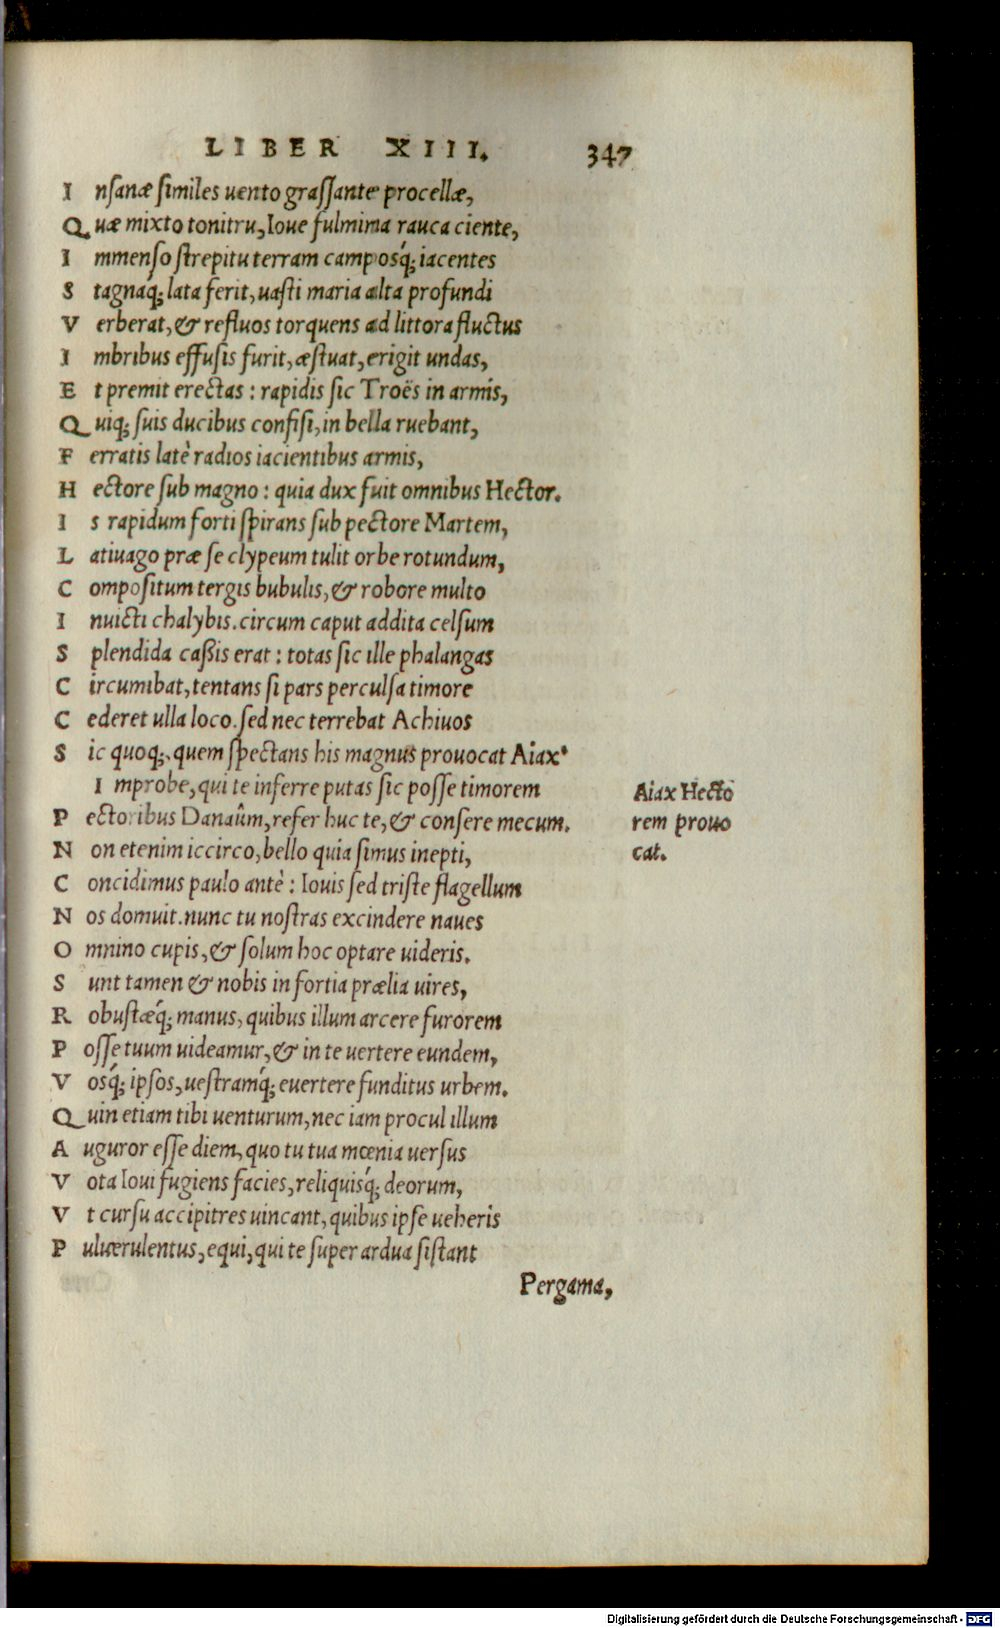 LIBER XIII. 347
Insanæ similes uento grassante procellæ,
Quæ mixto tonitru, Ioue fulmima rauca ciente,
Immenso strepitu terram camposq́; iacentes
Stagnaq́; lata ferit, uasti maria alta profundi
Verberat, & refluos torquens ad littora fluctus
Imbribus effusis furit, æstuat, erigit undas,
Et premit erectas : rapidis sic Troës in armis,
Quiq; suis ducibus confisi, in bella ruebant,
Ferratis latè radios iacientibus armis,
Hectore sub magno : quia dux fuit omnibus Hector.
Is rapidum forti spirans sub pectore Martem,
Latiuago præ se clypeum tulit orbe rotundum,
Compositum tergis bubulis, & robore multo
Inuicti chalybis. circum caput addita celsum
Splendida caßis erat : totas sic ille phalangas
Circumibat, tentans si pars perculsa timore
Cederet ulla loco. sed nec terrebat Achiuos
Sic quoq;. quem spectans his magnus prouocat Aiax.
Improbe, qui te inferre putas sic posse timorem
Aiax Hecto
Pectoribus Danaûm, refer huc te, & consere mecum.
rem prouo
Non etenim iccirco, bello quia simus inepti,
cat.
Concidimus paulo antè : Iouis sed triste flagellum
Nos domuit. nunc tu nostras excindere naues
Omnino cupis, & solum hoc optare uideris.
Sunt tamen & nobis in fortia prælia uires,
Robustæq́; manus, quibus illum arcere furorem
Posse tuum uideamur, & in te uertere eundem,
Vosq́; ipsos, uestramq́; euertere funditus urbem.
Quin etiam tibi uenturum, nec iam procul illum
Auguror esse diem, quo tu tua mœnia uersus
Vota Ioui fugiens facies, reliquisq́; deorum,
Vt cursu accipitres uincant, quibus ipse ueheris
Puluerulentus, equi, qui te super ardua sistant
Pergama,
Digitalisierung gefördert durch die Deutsche Forschungsgemeinschaft - DFG